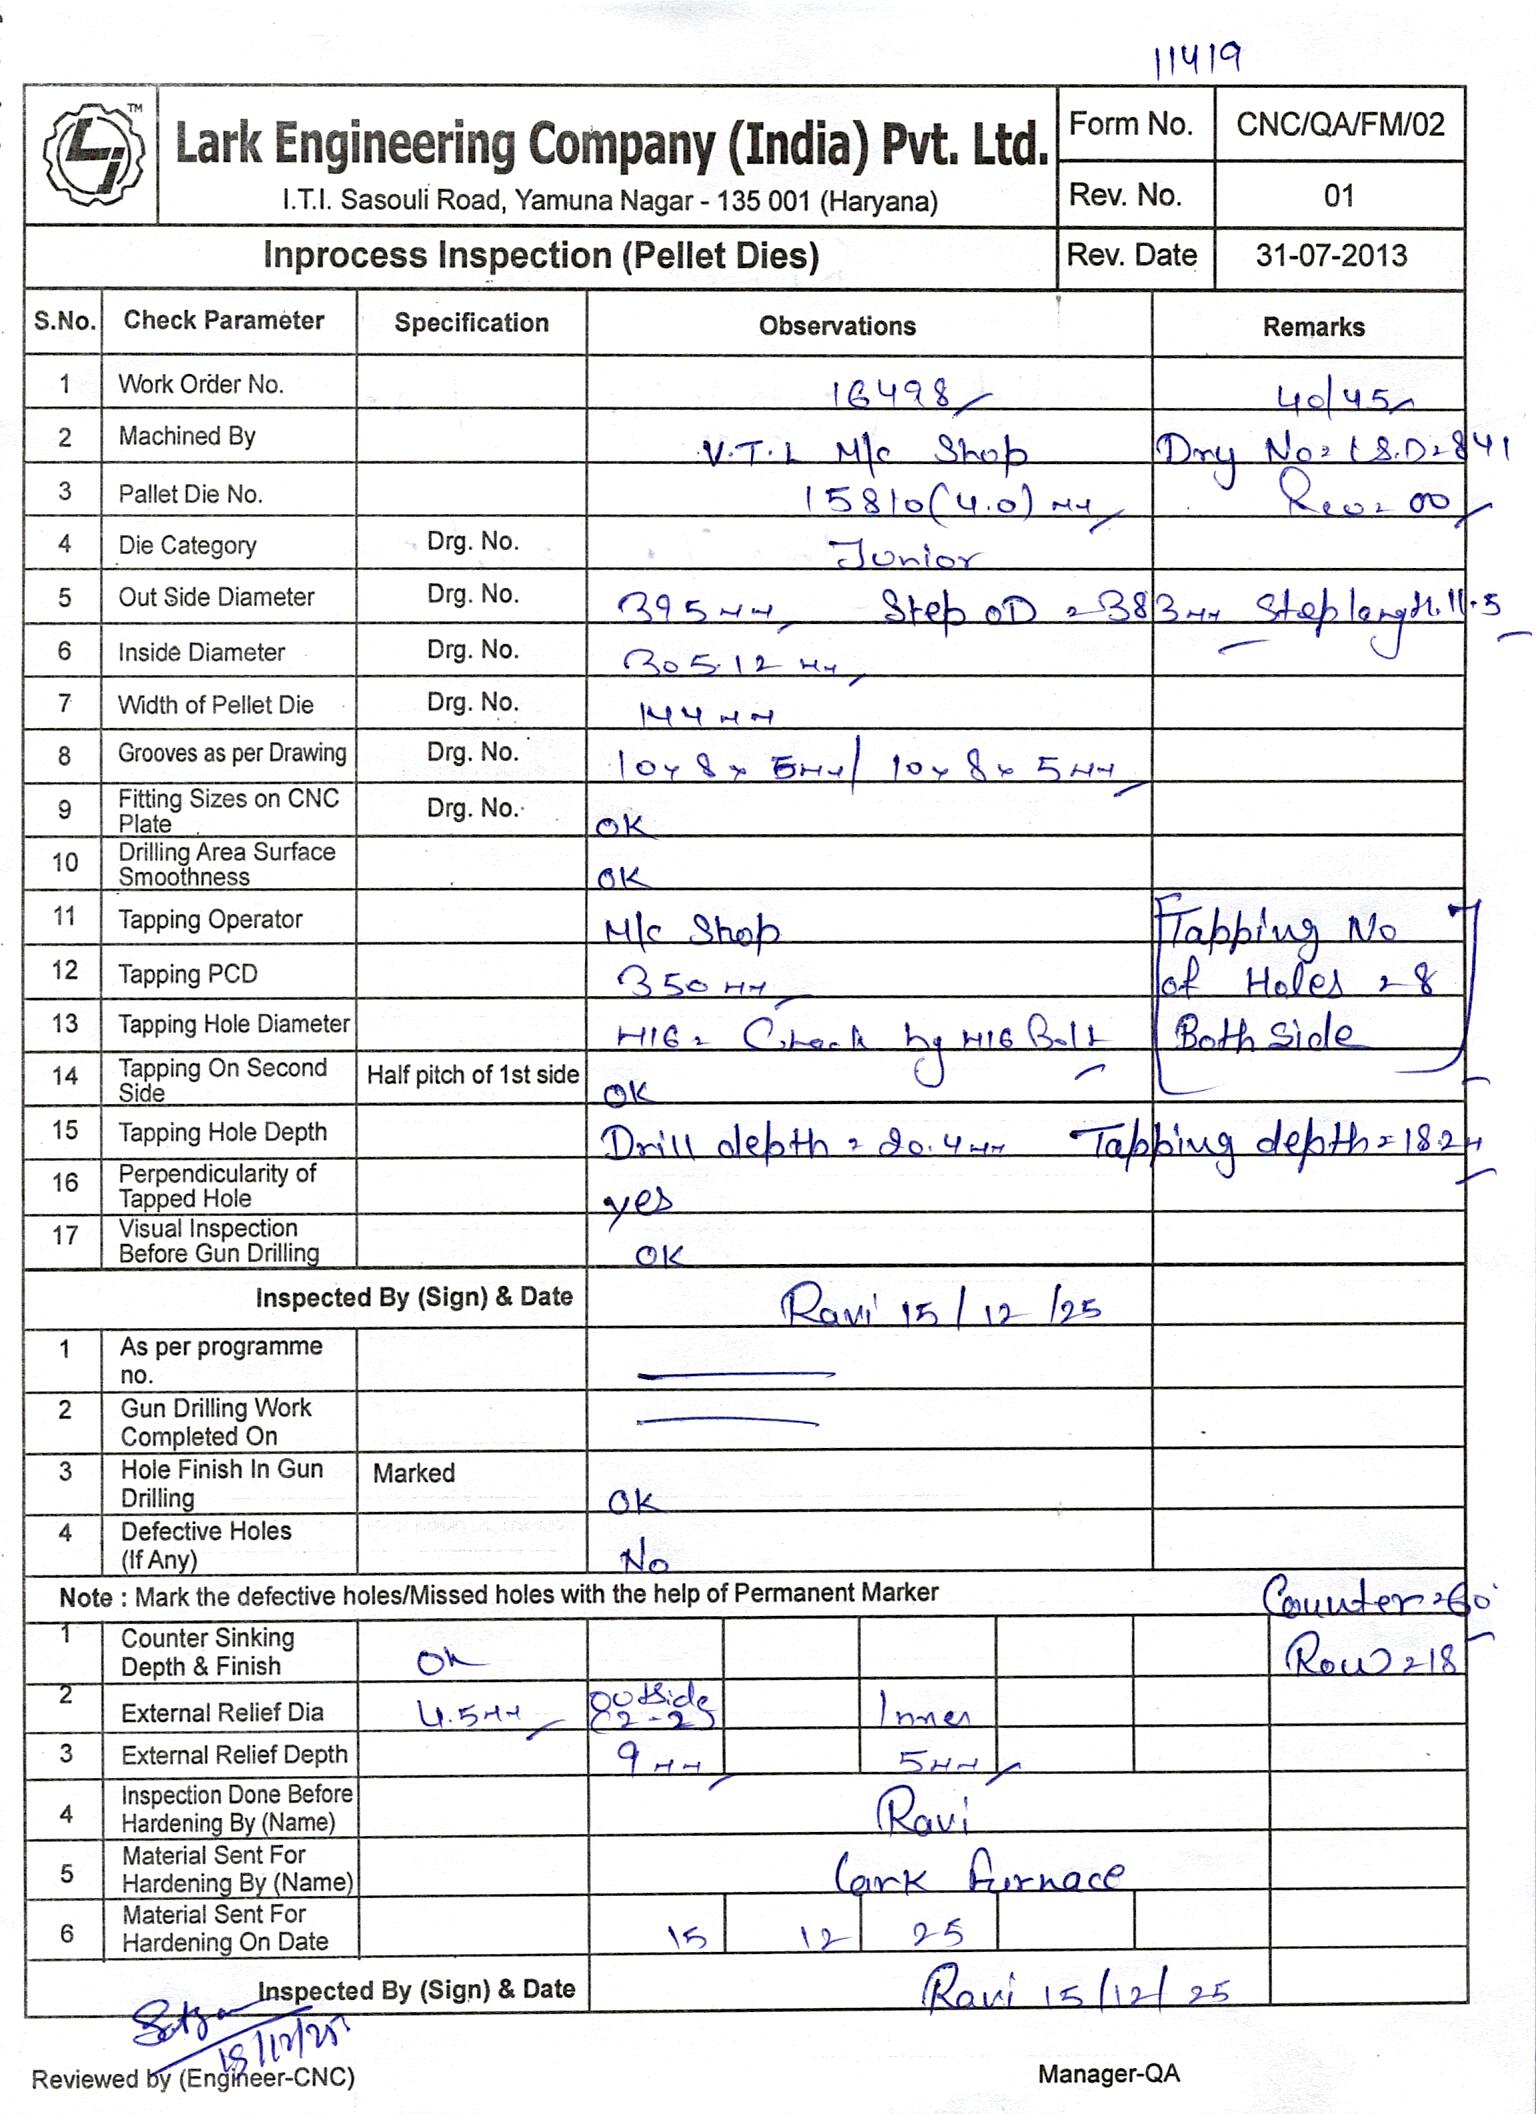 11419
Lark Engineering Company (India) Pvt. Ltd.
I.T.I. Sasouli Road, Yamuna Nagar - 135 001 (Haryana)
Form No. CNC/QA/FM/02
Rev. No. 01
Inprocess Inspection (Pellet Dies) Rev. Date 31-07-2013
S.No. Check Parameter Specification Observations Remarks
1 Work Order No. 16498 40/45
2 Machined By V.T.L M/c Shop
3 Pallet Die No. 15810(4.0) MM Rev = 00
4 Die Category Drg. No. Junior
5 Out Side Diameter Drg. No. 395 MM Step OD = 383 MM Step length. 11.5
6 Inside Diameter Drg. No. 305.12 MM
7 Width of Pellet Die Drg. No. 144 MM
8 Grooves as per Drawing Drg. No. 10 x 8 x 5 MM / 10 x 8 x 5 MM
9 Fitting Sizes on CNC Plate Drg. No. OK
10 Drilling Area Surface Smoothness OK
11 Tapping Operator M/c Shop Tapping No
12 Tapping PCD 350 MM of Holes = 8
13 Tapping Hole Diameter M16 = Check by M16 Bolt Both Side
14 Tapping On Second Side Half pitch of 1st side OK
15 Tapping Hole Depth Drill depth = 20.4 MM Tapping depth = 18.2 M
16 Perpendicularity of Tapped Hole yes
17 Visual Inspection Before Gun Drilling OK
Inspected By (Sign) & Date Ravi 15/12/25
1 As per programme no.
2 Gun Drilling Work Completed On
3 Hole Finish In Gun Drilling Marked OK
4 Defective Holes (If Any) No
Note : Mark the defective holes/Missed holes with the help of Permanent Marker Counter = 60°
1 Counter Sinking Depth & Finish OK Row = 18
2 External Relief Dia 4.5 MM Outside (2-2) Inner
3 External Relief Depth 9 MM 5 MM
4 Inspection Done Before Hardening By (Name) Ravi
5 Material Sent For Hardening By (Name) Lark Furnace
6 Material Sent For Hardening On Date 15 12 25
Inspected By (Sign) & Date Ravi 15/12/25
18/12/25
Reviewed by (Engineer-CNC) Manager-QA